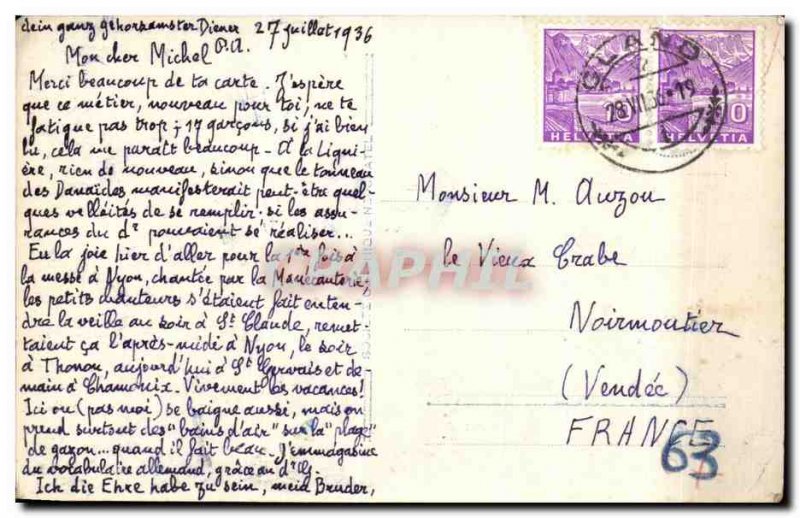 dein ganz gehorsamster Diener 27 juillet 1936
P.A.
Mon cher Michel
Merci beaucoup de ta carte. J'espère
que ce métier, nouveau pour toi, ne te
fatigue pas trop ; 17 garçons, si j'ai bien
lu, cela me paraît beaucoup - A la Lignière,
rien de nouveau, sinon que le tonneau
des Danaïdes manifesterait peut-être quelques
velléités de se remplir, si les assurances
du dr pouvaient se réaliser...
Eu la joie hier d'aller pour la 1ère fois à
la messe à Nyon, chantée par la Manécanterie.
les petits chanteurs s'étaient fait entendre
la veille au soir à St Claude, remettaient
ça l'après-midi à Nyon, le soir
à Thonon, aujourd'hui à St Gervais et demain
à Chamonix. Vivement les vacances!
Ici on (pas moi) se baigne aussi, mais on
prend surtout des "bains d'air" sur la "plage"
de gazon... quand il fait beau. J'emmagasine
du vocabulaire allemand, grâce au
Ich die Ehre habe zu sein, mein Bruder,
GLAND
28.VII.36-19
HELVETIA
HELVETIA
10
Monsieur M. Auzou
le Vieux Crabe
Noirmoutier
(Vendée)
FRANCE
63
DELCAMPHIL